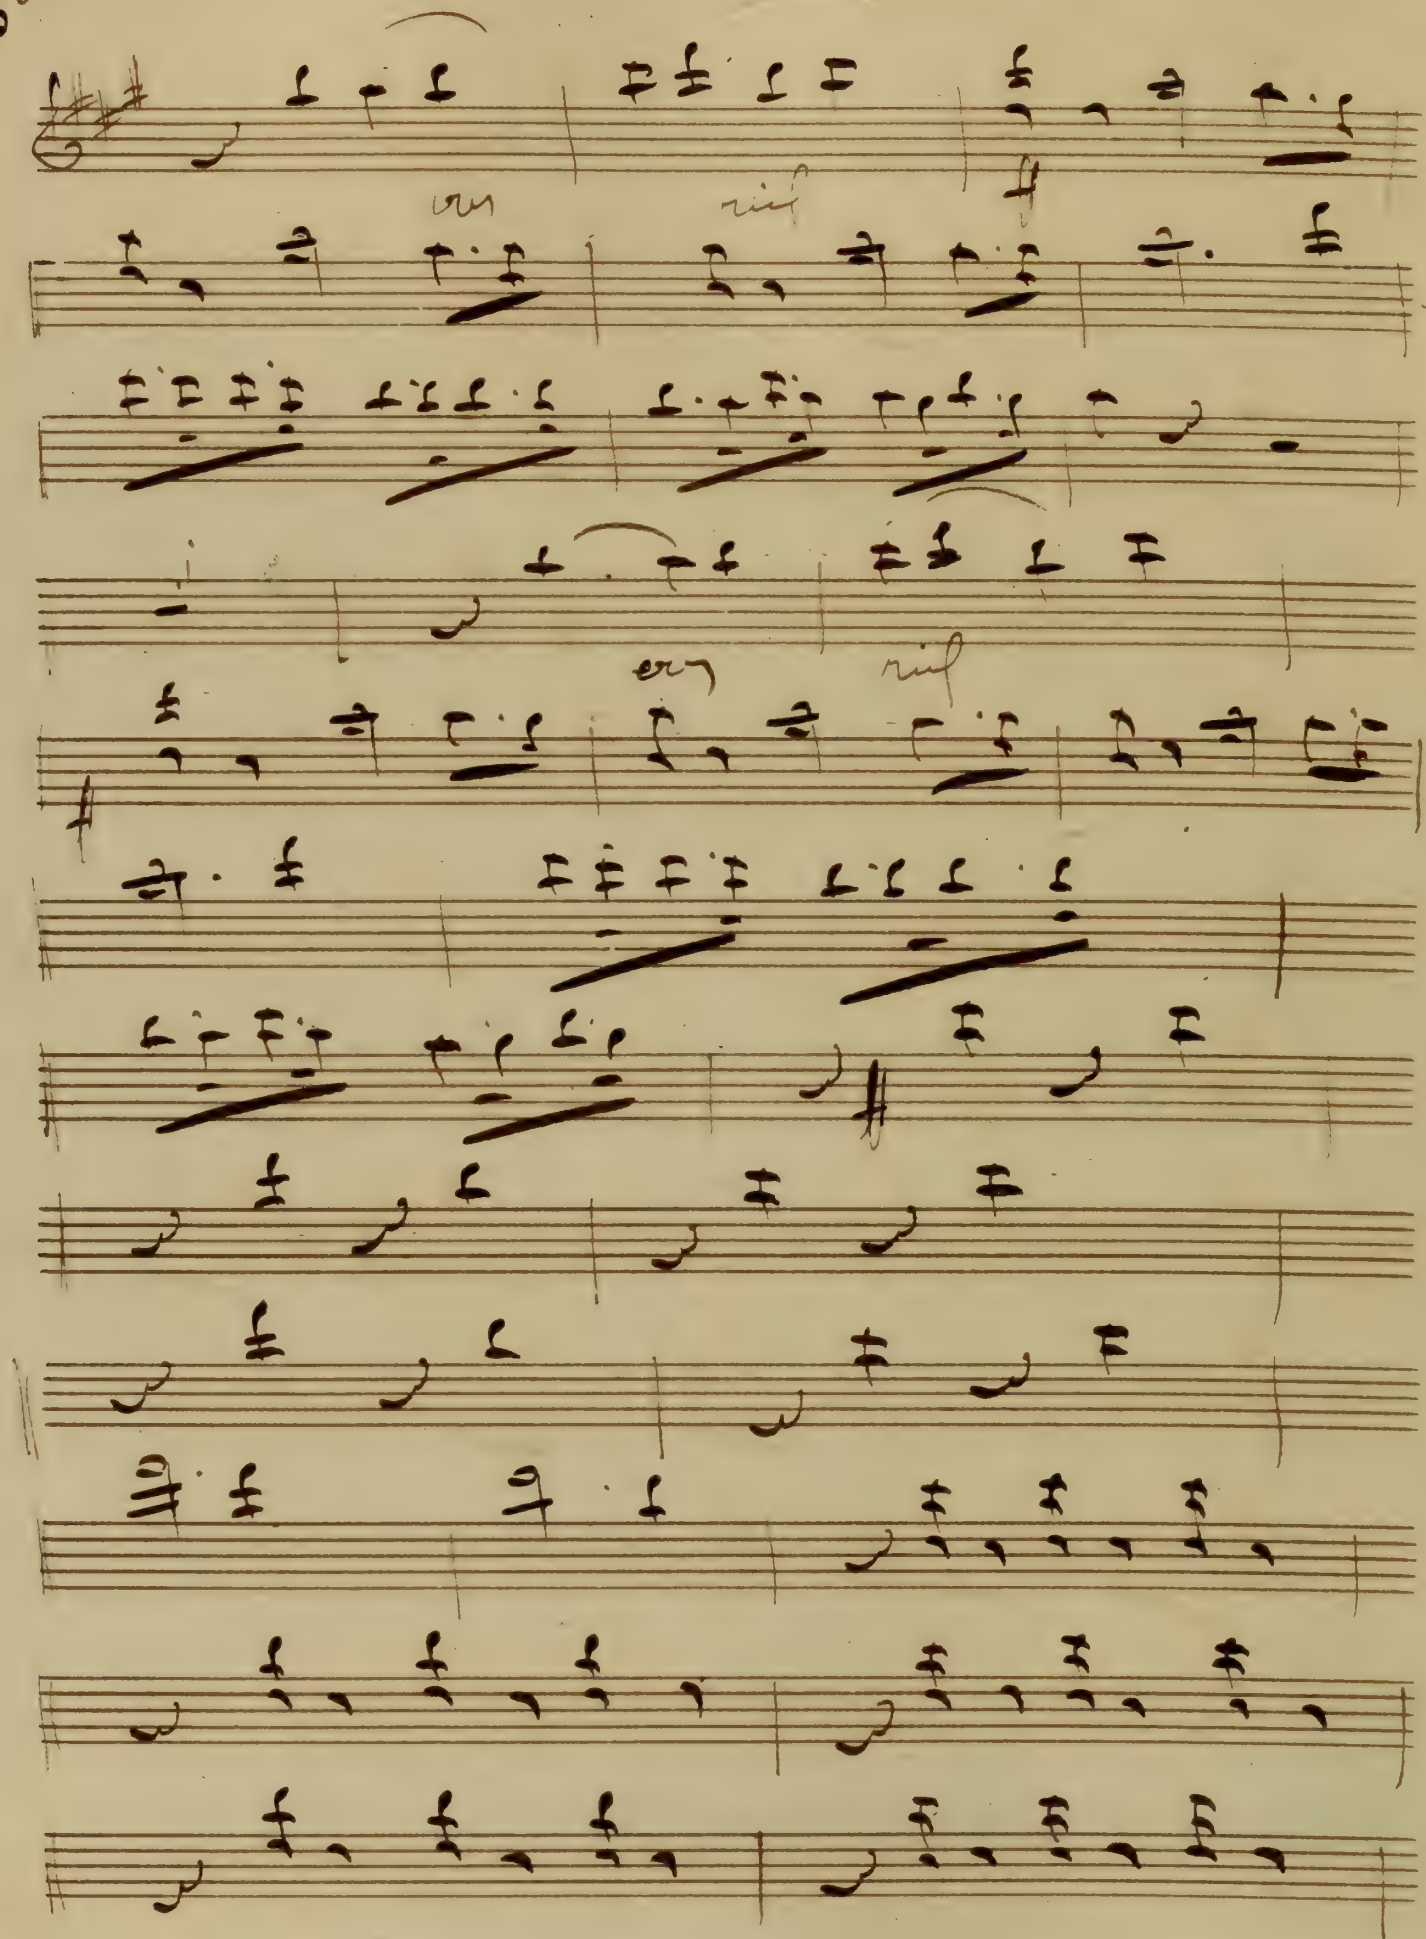 cres rinf f
cres rinf
f
f